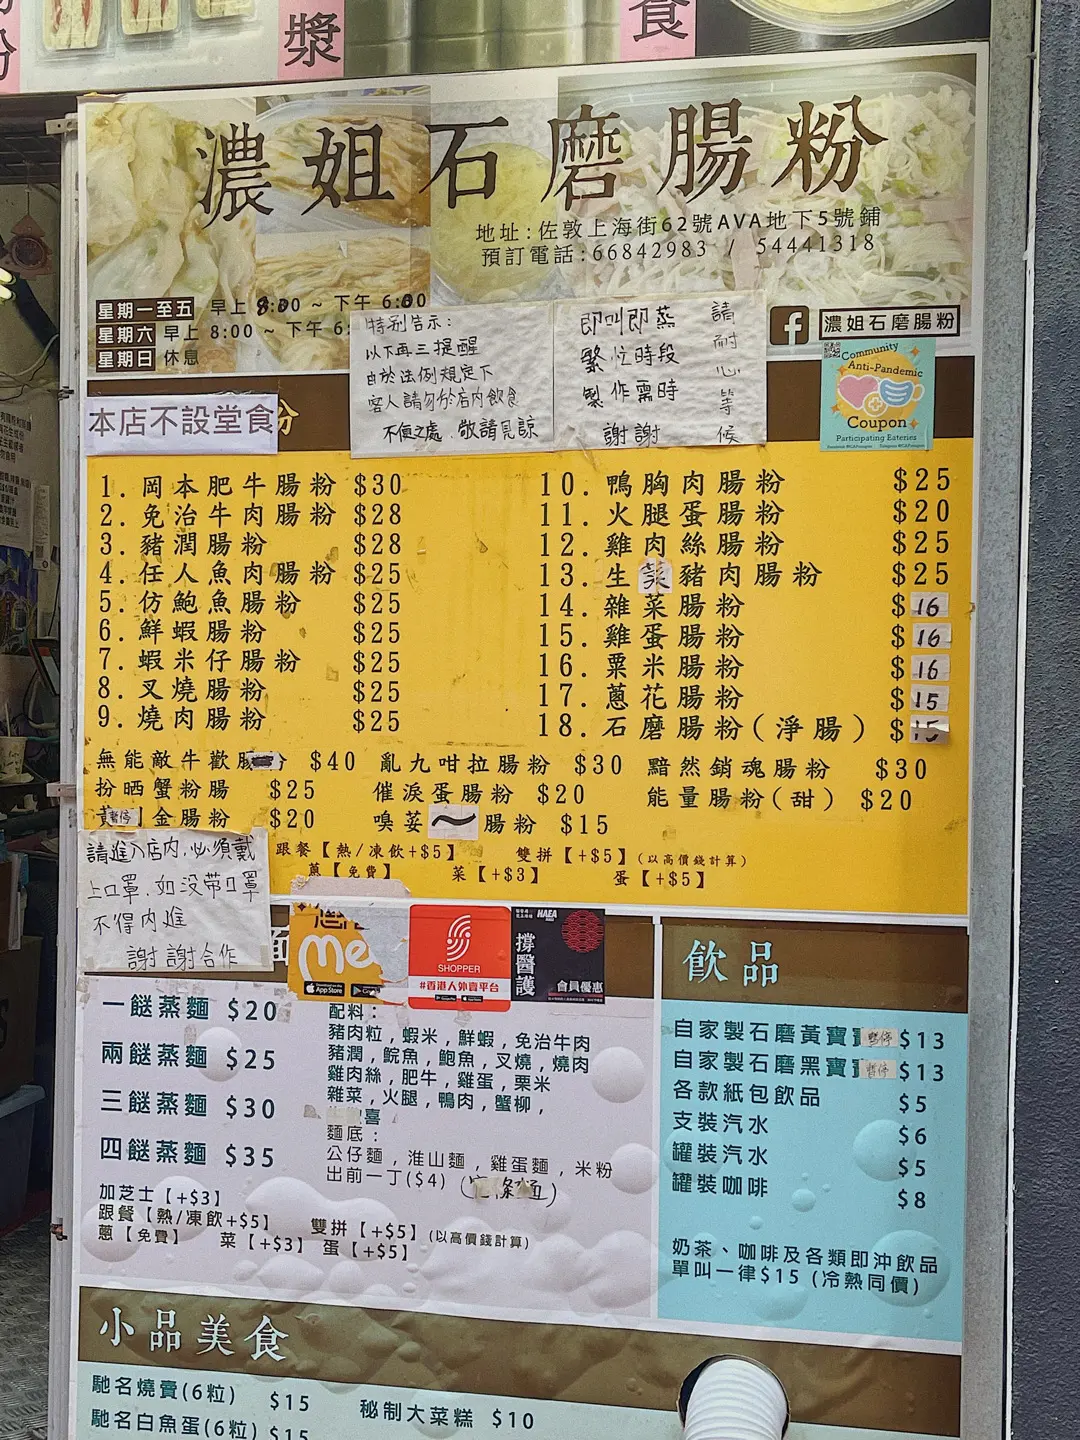 漿
食
濃姐石磨腸粉
地址:佐敦上海街62號AVA地下5號鋪
預訂電話:66842983 / 54441318
星期一至五 早上 8:00 ~ 下午 6:00
星期六 早上 8:00 ~ 下午 6:
星期日 休息
特別告示:
以下再三提醒
由於法例規定下
客人請勿於店內飲食
不便之處,敬請見諒
即叫即蒸
繁忙時段
製作需時
謝謝
請耐心等候
濃姐石磨腸粉
Community
Anti-Pandemic
Coupon
Participating Eateries
本店不設堂食
1. 岡本肥牛腸粉 $30
2. 免治牛肉腸粉 $28
3. 豬潤腸粉 $28
4. 任人魚肉腸粉 $25
5. 仿鮑魚腸粉 $25
6. 鮮蝦腸粉 $25
7. 蝦米仔腸粉 $25
8. 叉燒腸粉 $25
9. 燒肉腸粉 $25
10. 鴨胸肉腸粉 $25
11. 火腿蛋腸粉 $20
12. 雞肉絲腸粉 $25
13. 生菜豬肉腸粉 $25
14. 雜菜腸粉 $16
15. 雞蛋腸粉 $16
16. 粟米腸粉 $16
17. 蔥花腸粉 $15
18. 石磨腸粉(淨腸) $15
無能敵牛歡腸 $40 亂九咁拉腸粉 $30 黯然銷魂腸粉 $30
扮晒蟹粉腸 $25 催淚蛋腸粉 $20 能量腸粉(甜) $20
黃暫停金腸粉 $20 嗅荽～腸粉 $15
跟餐【熱/凍飲+$5】 雙拼【+$5】(以高價錢計算)
蔥【免費】 菜【+$3】 蛋【+$5】
請進入店內,必須戴
上口罩.如沒帶口罩
不得內進
謝謝合作
麵
me
App Store
SHOPPER
#香港人外賣平台
HAEA
撐醫護
會員優惠
一餸蒸麵 $20
兩餸蒸麵 $25
三餸蒸麵 $30
四餸蒸麵 $35
配料:
豬肉粒,蝦米,鮮蝦,免治牛肉
豬潤,鯇魚,鮑魚,叉燒,燒肉
雞肉絲,肥牛,雞蛋,栗米
雜菜,火腿,鴨肉,蟹柳,
喜
麵底:
公仔麵,淮山麵,雞蛋麵,米粉
出前一丁($4)
加芝士【+$3】
跟餐【熱/凍飲+$5】 雙拼【+$5】(以高價錢計算)
蔥【免費】 菜【+$3】 蛋【+$5】
飲品
自家製石磨黃寶暫停 $13
自家製石磨黑寶暫停 $13
各款紙包飲品 $5
支裝汽水 $6
罐裝汽水 $5
罐裝咖啡 $8
奶茶、咖啡及各類即沖飲品
單叫一律$15 (冷熱同價)
小品美食
馳名燒賣(6粒) $15
馳名白魚蛋(6粒) $15
秘制大菜糕 $10